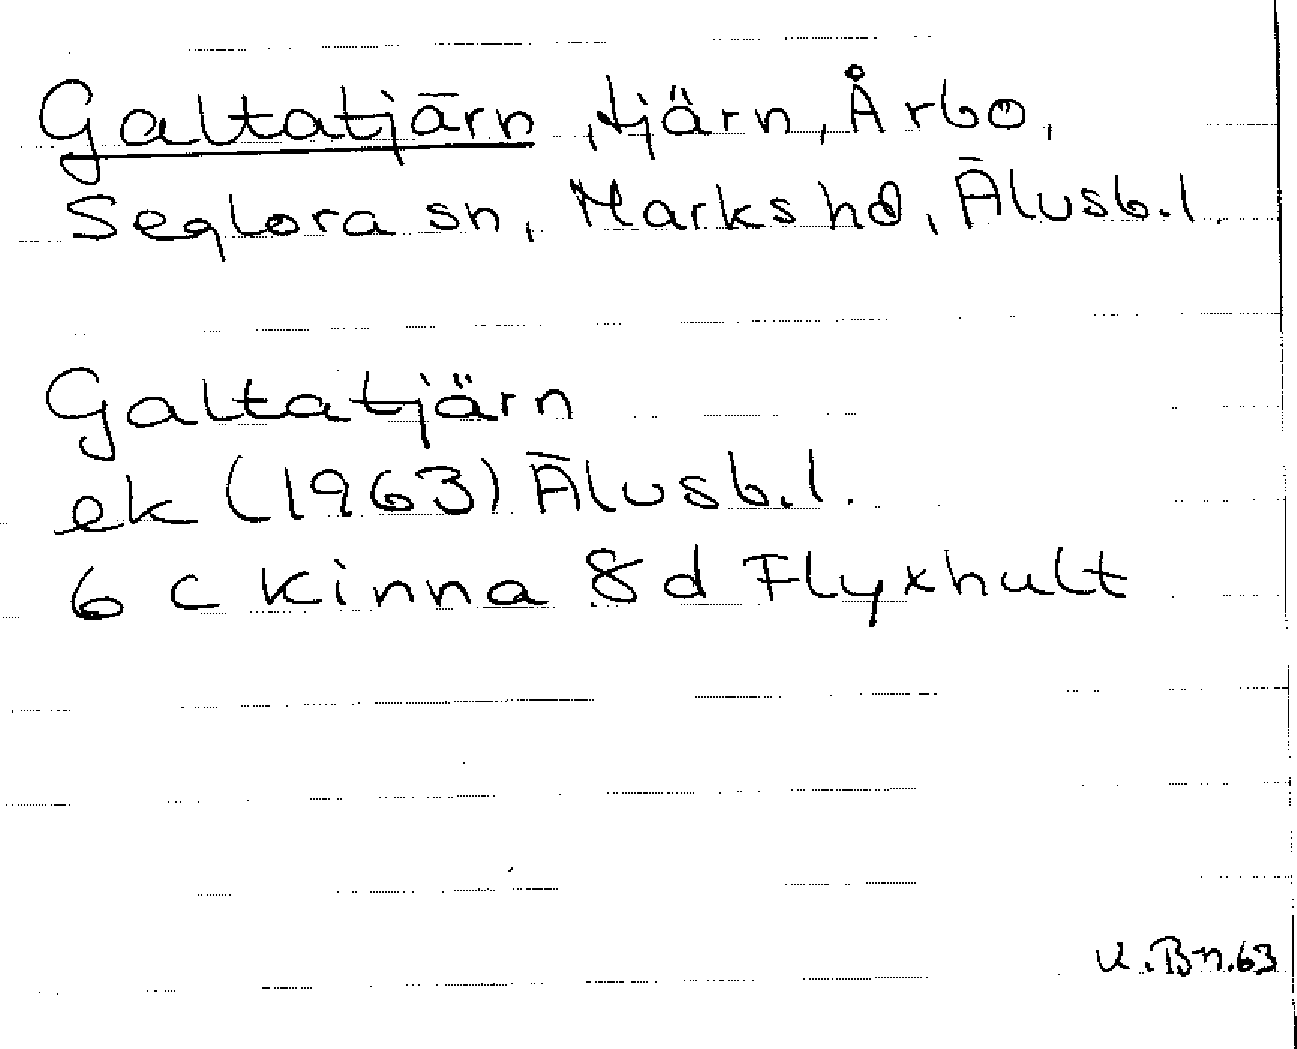 Galtatjärn, tjärn, Årbo,
Seglora sn, Marks hd, Älvsb.l.
Galtatjärn
ek (1963) Älvsb.l.
6 c Kinna 8 d Flyxhult
K.Bn.63